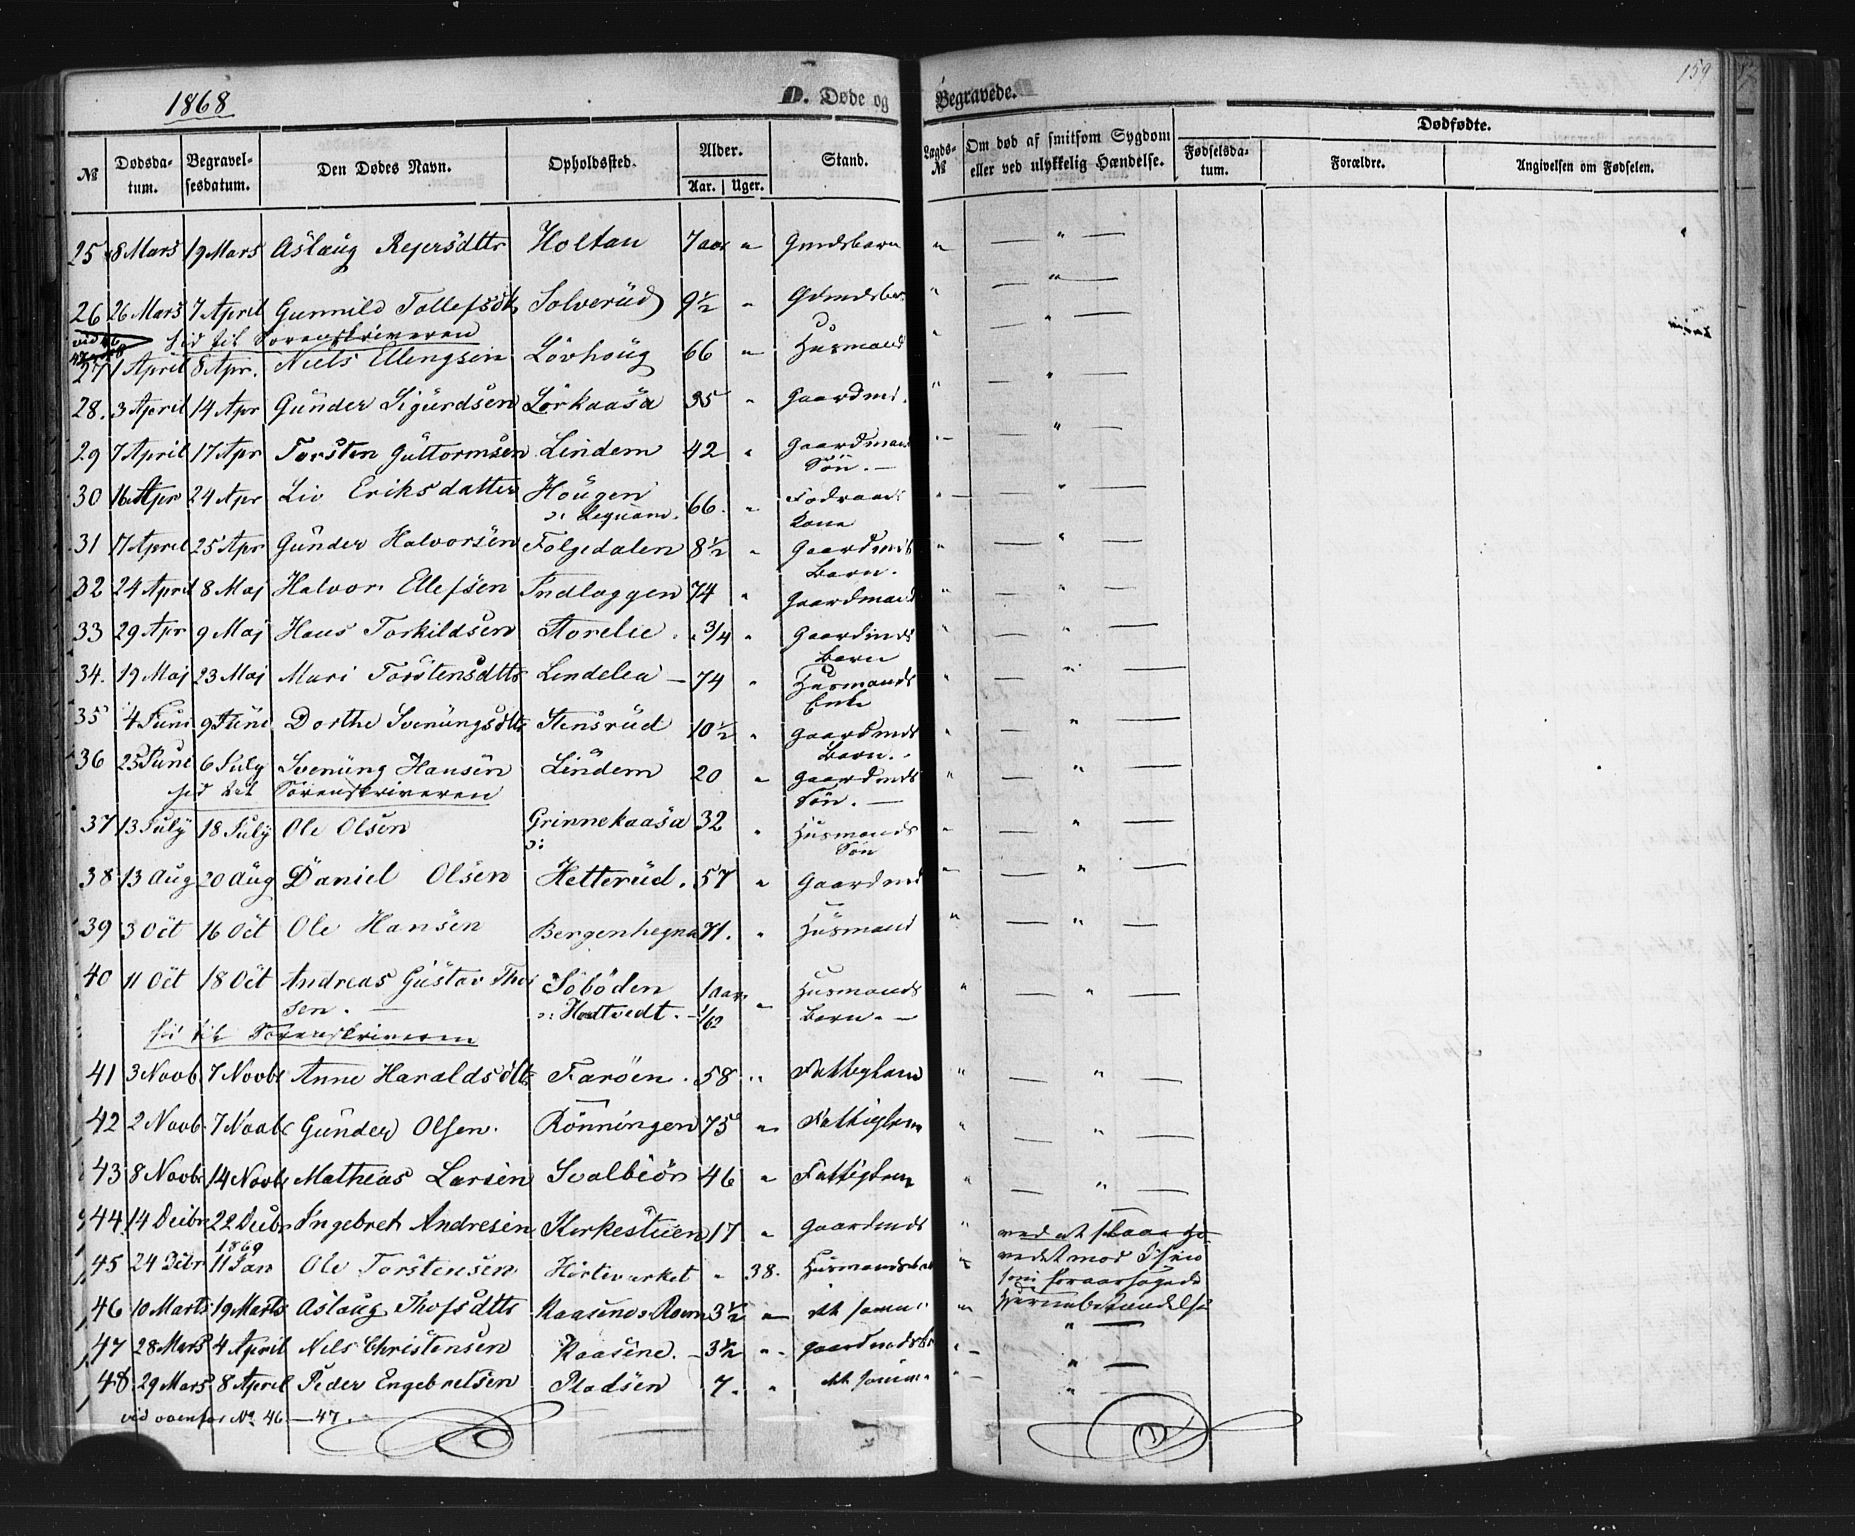 1868
D. Døde og Begravede.
159
№ Dødsda-tum. Begravel-sesdatum. Den Dødes Navn. Opholdssted. Alder. Aar. Uger. Stand. Lægds-№ Om død af smitsom Sygdom eller ved ulykkelig Hændelse. Dødfødte. Fødselsda-tum. Forældre. Angivelsen om Fødselen.
25 8 Mars 19 Mars Aslaug Rejersdttr Holtan 7 aar " Gmdsbarn " — " —
26 26 Mars 7 April Gunnild Tollefsdtr Solverüd 9½ " " — " —
hid til Sorenskriveren
27 1 April 8 Apr. Niels Ellengsen Lövhoüg 66 " Husmand " — " —
28. 3 April 14 Apr Günder Sigürdsen Lörkaasa 35 " Gaardmd. " — " —
29 7 April 17 Apr Torsten Güttormsen Lindem 42 " Gaardmands " — " —
Sön. —
30 16 Apr 24 Apr Liv Eriksdatter Hougen 66. " " — " —
Kone
31 17 April 25 Apr Günder Halvorsen Folgedalen 8½ " Gaardmds " — " —
Barn.
32 24 April 8 Maj Halvor Ellefsen Indlaggen 74 " Gaardmand " — " —
33 29 Apr 9 Maj Hans Torkildsen Storelie . " 3/4 " Gaardmds " — " —
Barn
34. 19 Maj 23 Maj Mari Torstensdttr Lindelia — 74 " Husmands " — " —
Enke
35 4 Juni 9 Jüni Dorthe Svenüngsdtr Stensrüd 10½ " Gaardmds " — " —
Barn.
36 25 Juni 6 July Svenüng Hansen Lindem 20 " Gaardmds " — " —
hid til Sorenskriveren
Sön. —
37 13 July 18 July Ole Olsen Grinnekaasa 32 " Husmands " — " —
Sön
38 13 Aug 20 Aüg Daniel Olsen Hetterüd. 57 " Gaardmd " — " —
39 3 Oct 16 Oct Ole Hansen Bergenhegna 71. " Husmand " — " —
40 11 Oct 18 Oct Andreas Güstav Thor Söböden 1 aar " Husmands " — " —
sen. — Hodtvedt. — Barn. —
hid til Sorenskriveren
41 3 Novb. 7 Novbr Anne Haraldsdtr Faröen . 58 " Fattiglem " — " —
42 2 Novb. 7 Novbr Günder Olsen. Rönningen 75 " Fattiglem " — " —
43 8 Novbr 14 Novbr Mathias Larsen Svalbiör 46 " Fattiglem " — " —
44. 14 Decbr 22 Decbr Ingebret Andresen Kirkestuen 17 " Gaardmds " ved at slaae Ho-
1869
45 24 Dcbr 11 Jan Ole Torstensen " 38. Husmandsbarn " vedet mod Isen
som foraarsagede
46 10 Marts 19 Marts Aslaug Thofsdttr Kaasenes Roen 3½ " dt samme " Hjernebetændelse
" —
47 28 Mars 4 April Nils Christensen Kaasene. — 3½ " " " —
48 29 Mars 8 April Peder Engebretsen Pladsen 7. " dt samme " — "
vid ovenfor No. 46 — 47.